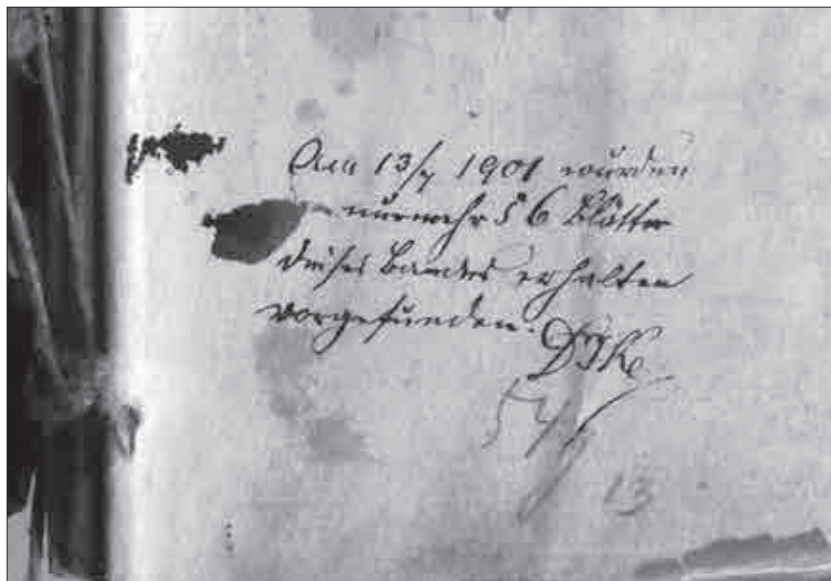 Am 13/7 1901 wurden
nunmehr 56 Blätter
dieses Bandes erhalten
vorgefunden.
13